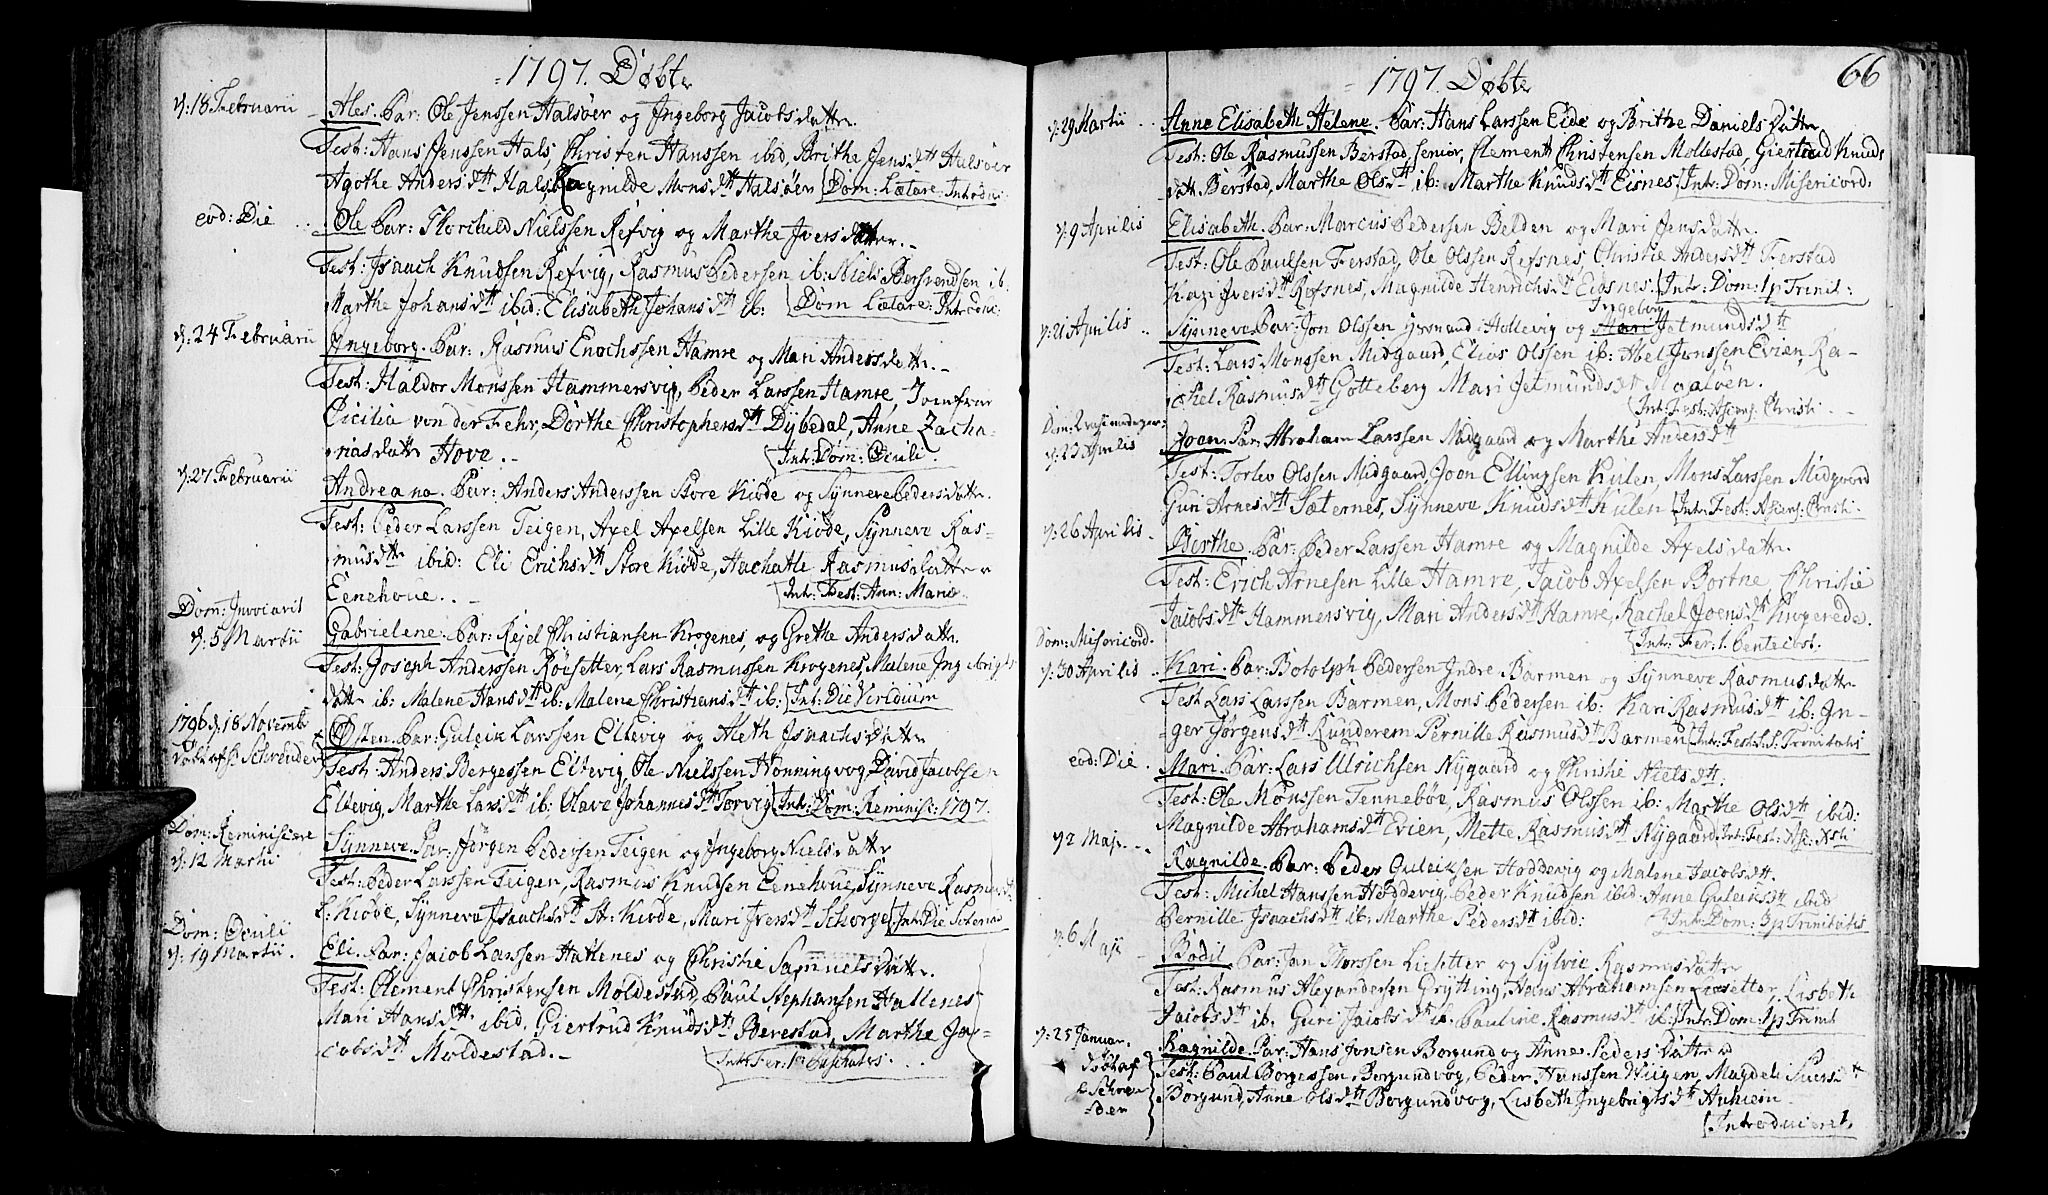 1797. Døbte
d: 18 Februarii
Ales. Par: Ole Jenssen Halsöer og Jngeborg Jacobsdatter.
Test: Hans Jenssen Hals, Christen Hanssen ibid, Brithe Jensdtt Halsöer
Agothe Andersdtt Hals, Ragnilde Monsdtt Halsöer Dom: Lætare: Introdu:
eod: Die
Ole Par: Thorchild Nielssen Refvig og Marthe Jversdatter.
Test: Jsaach Knudsen Refvig, Rasmus Pedersen ib: Niels Bersvendsen ib:
Marthe Johansdtt ibid: Elisabeth Johansdtt ib: Dom Lætare: Introduc:
d: 24 Februarii
Jngeborg. Par: Rasmus Enochssen Hamre og Mari Andersdatter.
Test: Haldor Monssen Hammersvig, Peder Larssen Hamre, Jomfrue
Cicilia von der Fehr, Dorthe Christophersdtt Dybedal, Anne Zacha-
riasdatter Hove.
Int: Dom: Oculi.
d: 27 Februarii
Andreana. Par: Anders Anderssen Store Kiøde og Synneve Pedersdatter.
Test: Peder Larssen Teigen, Axel Axelsen Lille Kiøde, Synneve Ras-
musdtt ibid: Eli Erichsdtt Store Kiøde, Hachatle Rasmusdatter
Eenehoue.
Int: Fest: Ann: Mariæ.
Dom: Invocavit
d: 5 Martii
Gabrielene. Par: Rejel Christiansen Krogenes, og Grethe Andersdatter.
Test: Joseph Anderssen Röisetter, Lars Rasmussen Krogenes, Malene Jngebrigts
datter ib: Malene Hansdtt ib: Malene Christiansdtt ib: Int: Die Viridium
1796 d: 18 Novemb
døbt af P: Schreuder
Østen. Par: Guleik Larssen Eltevig og Aleth Jsaachsdatter
Test: Anders Bergessen Eltevig, Ole Nielssen Honningvog David Jacobsen
Eltevig, Marthe Larsdtt ib: Olave Johannesdtt Torvig Int: Dom: Reminisc: 1797.
Dom: Reminiscere
d: 12 Martii
Synneve. Par: Jørgen Pedersen Teigen og Jngeborg Nielsdatter
Test: Peder Larssen Teigen, Rasmus Knudsen Eenehoue, Synneve Rasmusdtt
L: Kiøde, Synneva Jsaachsdtt St: Kiøde, Mari Jversdtt Schorge Int: Die
Dom: Oculi
d: 19 Martii.
Eli. Par: Jacob Larssen Hattenes og Christie Samuelsdatter.
Test: Clement Christensen Moldestad, Paul Stephansen Hattenes
Mari Hansdtt ibid, Giertrud Knudsdtt Berestad, Marthe Ja-
cobsdtt Moldestad.
Int: Fer: 1 Paschatos.
1797. Døbte
66
d: 29 Martii
Anne Elisabeth Helene. Par: Hans Larssen Eide og Brithe Danielsdatter
Test: Ole Rasmussen Berstad, senior, Clement Christensen Mollestad, Giertrud Knuds
datt. Berstad, Marthe Olsdtt ib: Marthe Knudsdtt Eisnes Int: Dom: Misericord:
d: 9 Aprilis
Elisabeth. Par: Marcus Pedersen Belden og Mari Jensdatter.
Test: Ole Paulsen Ferstad, Ole Olssen Refsnes Christie Andersdtt Ferstad
Kari Jversdtt Refsnes, Magnilde Henrichsdtt Eidsnes. Int: Dom: 1 p Trinit:
Ingeborg
d: 21 Aprilis
Synneve Par: Jon Olssen Hollevig og Mari Jetmundsdtt
Test: Lars Monssen Midgaard, Elias Olssen ib: Abel Jonssen Evien, Ra-
chel Rasmusdtt Gotteberg Mari Jetmundsdtt Maaløen.
Int: Fest: Ascens: Christi
Dom: Qvasimodogen:
d: 23 Aprilis
Joen. Par. Abraham Larssen Midgaard og Marthe Andersdtt
Test: Torlev Olssen Midgaard, Joen Ellingsen Kulen, Mons Larssen Midgaard
Guri Arnesdtt Sæternes, Synneve Knudsdtt Kulen Int: Fest: Ascens: Christi.
d: 26 Aprilis
Birthe. Par: Peder Larssen Hamre og Magnilde Axelsdatter.
Test: Erich Arnesen Lille Hamre, Jacob Axelsen Bortne Christie
Jacobsdtt Hammersvig, Mari Andersdtt Hamre, Rachel Joensdtt Krogerede.
Int: Fer: 1 Pentecost.
Dom: Misericord.
d: 30 Aprilis
Kari. Par: Botolph Pedersen Jndre Barmen og Synneve Rasmusdatter
Test Lars Larssen Barmen, Mons Pedersen ib: Kari Rasmusdtt ib: In-
ger Jörgensdtt Runderem Pernille Rasmusdtt Barmen Int: Fest: S: S: Trinitatis
eod: Die
Mari. Par: Lars Ulrichsen Nygaard og Christie Nielsdtt:
Test: Ole Mönssen Tennebøe, Rasmus Olssen ib: Marthe Olsdtt ibid:
Magnilde Abrahamsdtt Evien, Mette Rasmusdtt Nygaard. Int: Fest: Asc: Xsti
d: 2 Maji
Ragnilde. Par: Peder Guleiksen Hoddevig og Malene Jacobsdtt.
Test: Michel Hanssen Hoddevig, Peder Knudsen ibid: Anne Guleiksdtt ibid
Pernille Jsaachsdtt ib: Marthe Pedersdtt ibid:
Int: Dom: 3 p Trinitatis
d: 6 Maji
Bodil. Par: Jan Thorssen Lisetter og Sylvie Rasmusdatter
Test: Rasmus Alexandersen Grytting, Hans Abrahamsen Lisetter, Lisbeth
Jacobsdtt ib. Guri Jacobsdtt ib. Pauline Rasmusdtt ib. Int: Dom: 1 p Trinit
d: 25 Januar.
døbt af
P Schreu
der
Ragnilde. Par: Hans Jonsen Borgund og Anne Pedersdatter
Test: Paul Borgessen Borgundvog, Peder Hanssen Hugen, Magdeli Siversdtt
Borgund, Anne Olsdtt Borgundvog, Lisbeth Jngebrigtsdtt
Introduceret